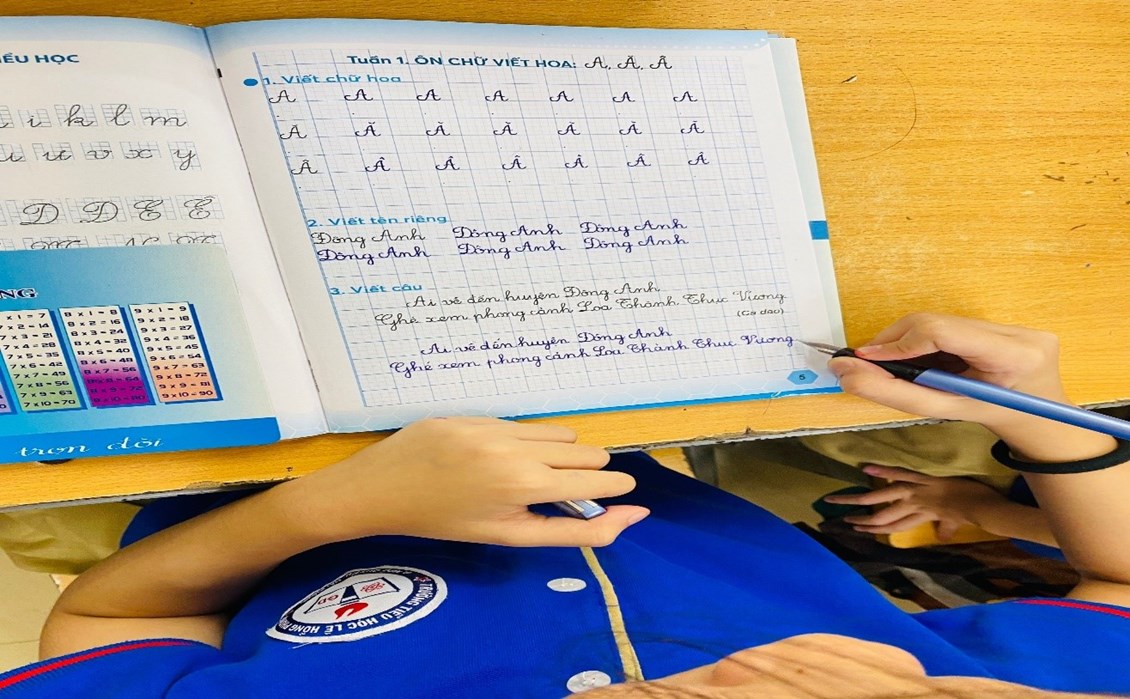 ỂU HỌC
i k l m
u ư v x y
D D E E
NG
x 1 = 7
7 x 2 = 14
7 x 3 = 21
7 x 4 = 28
7 x 5 = 35
7 x 6 = 42
7 x 7 = 49
7 x 8 = 56
7 x 9 = 63
7 x 10 = 70
8 x 1 = 8
8 x 2 = 16
8 x 3 = 24
8 x 4 = 32
8 x 5 = 40
8 x 6 = 48
8 x 7 = 56
8 x 8 = 64
8 x 9 = 72
8 x 10 = 80
9 x 1 = 9
9 x 2 = 18
9 x 3 = 27
9 x 4 = 36
9 x 5 = 45
9 x 6 = 54
9 x 7 = 63
9 x 8 = 72
9 x 9 = 81
9 x 10 = 90
trọn đời
Tuần 1. ÔN CHỮ VIẾT HOA: A, Ă, Â
1. Viết chữ hoa
A A A A A A A
Ă Ă Ă Ă Ă Ă Ă
Â Â Â Â Â Â Â
2. Viết tên riêng
Đông Anh Đông Anh Đông Anh
Đông Anh Đông Anh Đông Anh
3. Viết câu
Ai về đến huyện Đông Anh
Ghé xem phong cảnh Loa Thành Thục Vương
(Ca dao)
Ai về đến huyện Đông Anh
Ghé xem phong cảnh Loa Thành Thục Vương
5
TRƯỜNG TIỂU HỌC LÊ HỒNG